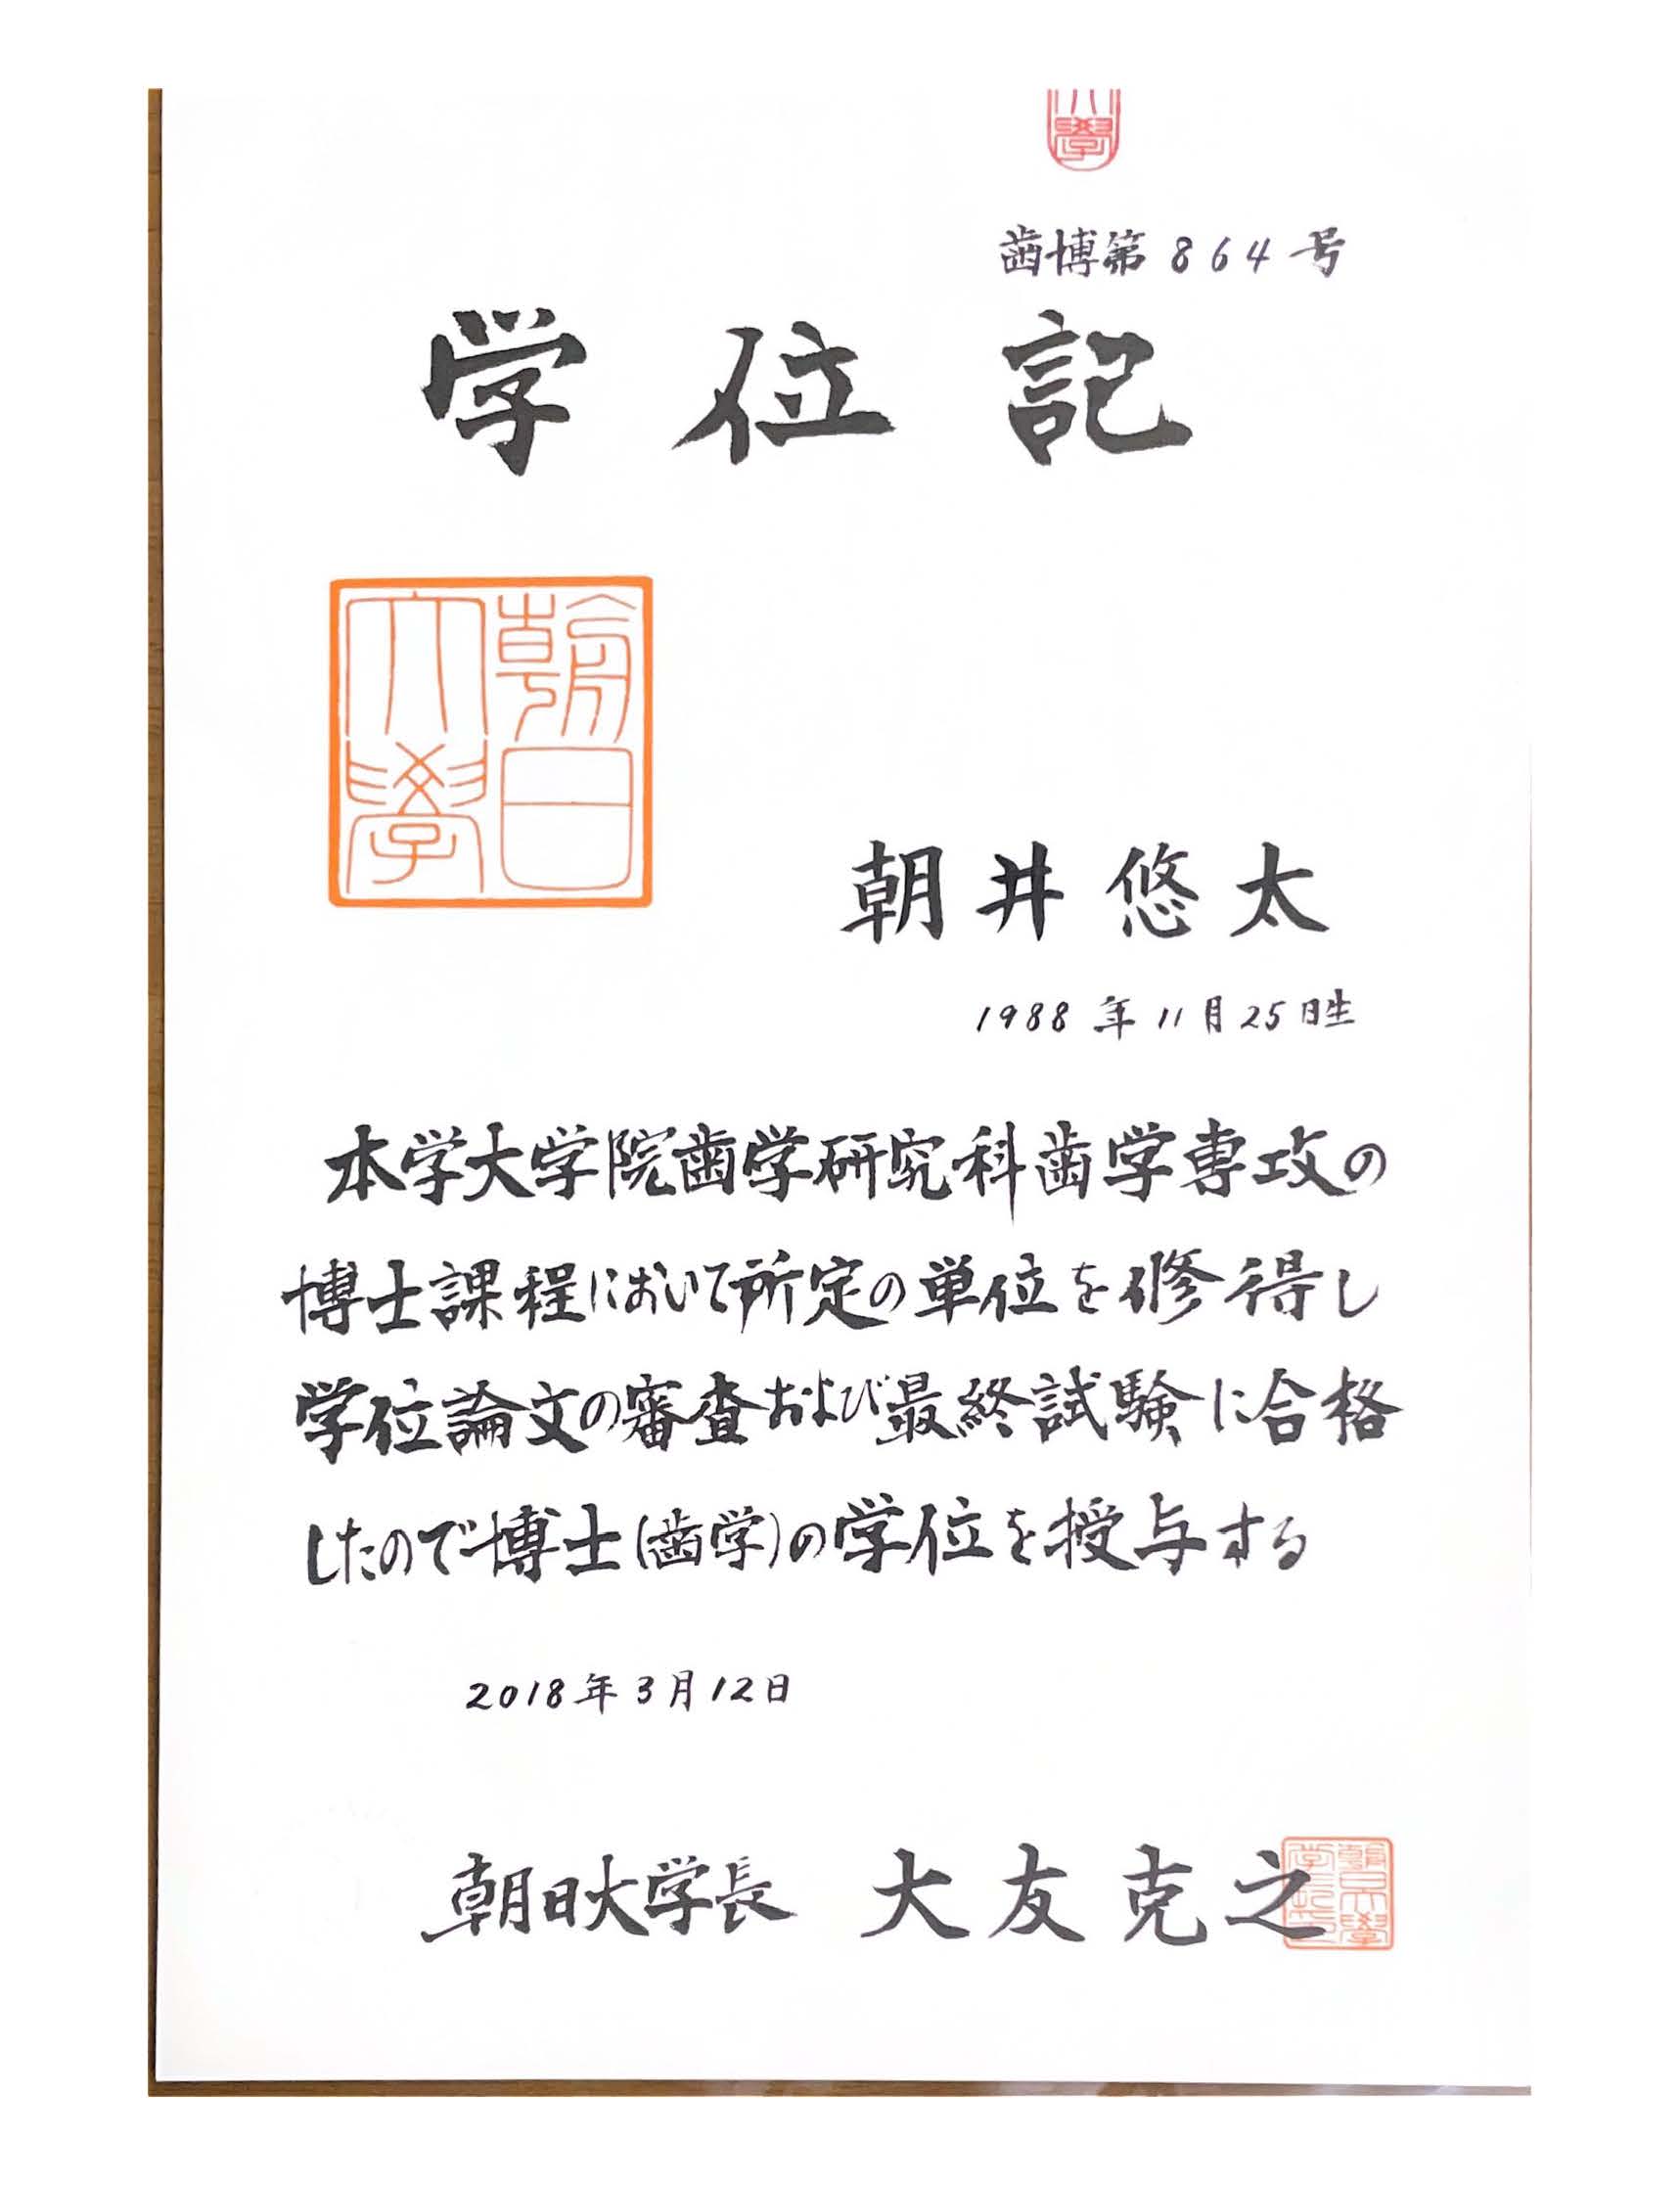 大學
歯博第864号
学位記
朝日大學
朝井悠太
1988年11月25日生
本学大学院歯学研究科歯学専攻の
博士課程において所定の単位を修得し
学位論文の審査および最終試験に合格
したので博士(歯学)の学位を授与する
2018年3月12日
朝日大学長 大友克之